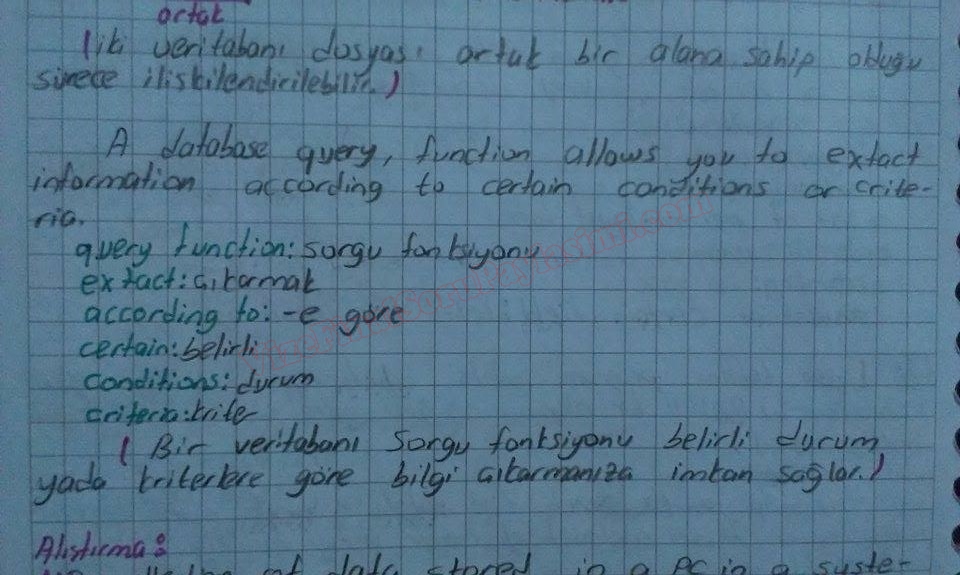 ortak
(iki veritabanı dosyası ortak bir alana sahip olduğu
sürece iliskilendirilebilir.)
A database query, function allows you to extact
information according to certain conditions or crite-
ria.
query function: sorgu fonksiyonu
extact: çıkarmak
according to: -e göre
certain: belirli
conditions: durum
criteria: krite
( Bir veritabanı sorgu fonksiyonu belirli durum
yada kriterlere göre bilgi çıkarmanıza imkan sağlar.)
Alıstırma:
of data stored in a PC in a syste-